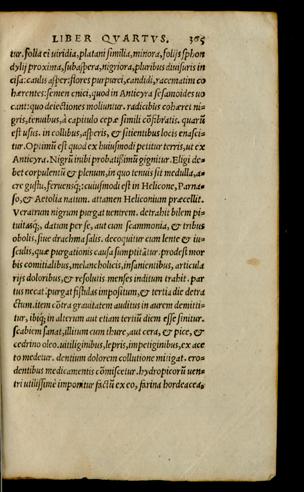 LIBER QVARTVS. 305
tur. folia ei viridia, platani similia, minora, folijs sphon
dylij proxima, subaspera, nigriora, pluribus diuisuris in
cisa: caulis asper: flores purpurei, candidi, racematim co
hærentes: semen cnici, quod in Anticyra sesamoides uo
cant: quo deiectiones moliuntur. radicibus cohæret ni-
gris, tenuibus, à capitulo cepæ simili cõsibratis. quarũ
est usus. in collibus, asperis, & sitientibus locis enasci-
tur. Optimũ est quod ex huiusmodi petitur terris, ut ex
Anticyra. Nigrũ inibi probatissimũ gignitur. Eligi de
bet corpulentũ & plenum, in quo tenuis sit medulla, a-
cre gustu, feruensq; cuiusmodi est in Helicone, Parna-
so, & Aetolia natum. attamen Heliconium præcellit.
Veratrum nigrum purgat uentrem. detrahit bilem pi-
tuitasq;, datum per se, aut cum scammonia, & tribus
obolis, siue drachma salis. decoquitur cum lente & iu-
sculis, quæ purgationis causa sumptitãtur. prodest mor
bis comitialibus, melancholicis, insanientibus, articula
rijs doloribus, & resolutis menses inditum trahit. par
tus necat: purgat fistulas impositum, & tertia die detra
ctum. item cõtra grauitatem auditus in aurem demitti-
tur, ibiq; in alterum aut etiam tertiũ diem esse sinitur.
Scabiem sanat, illitum cum thure, aut cera, & pice, &
cedrino oleo. uitiliginibus, lepris, impetiginibus, ex ace
to medetur. dentium dolorem collutione mitigat. ero-
dentibus medicamentis cõmiscetur. hydropicorũ uen-
tri utilissimè imponitur factũ ex eo, farina hordeacea,